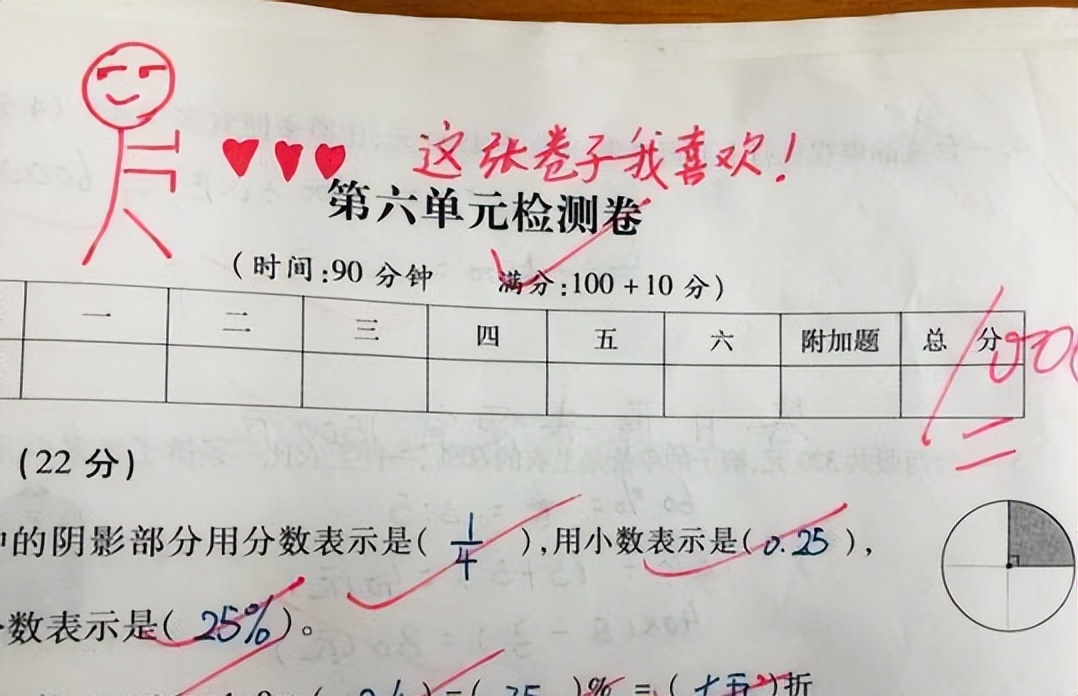 这张卷子我喜欢!
第六单元检测卷
(时间:90 分钟 满分:100+10 分)
一 二 三 四 五 六 附加题 总 分
100
(22 分)
的阴影部分用分数表示是( 1/4 ),用小数表示是( 0.25 ),
数表示是( 25% )。
)%=( 七五 )折